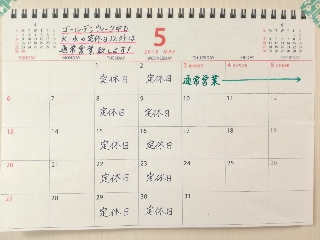 ゴールデンウィーク中の
火 水の定休日以外は
通常営業致します!
5
2018 MAY
4
6
SUNDAY MONDAY TUESDAY WEDNESDAY THURSDAY FRIDAY SATURDAY
1 2 3 4 5
定休日 定休日 通常営業
6 7 8 9 10 11 12
定休日 定休日
13 14 15 16 17 18 19
定休日 定休日
20 21 22 23 24 25 26
定休日 定休日
27 28 29 30 31
定休日 定休日